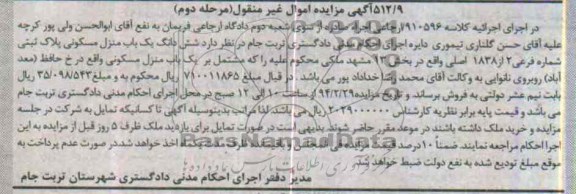 ۵۱۲/۹آگهی مزایده اموال غیر منقول(مرحله دوم)
در اجرای اجرائیه کلاسه ۹۱۰۵۹۶/ارجاعی اجراء صادره از سوی شعبه دوم دادگاه ارجاعی فریمان به نفع آقای ابوالحسن ولی پور کرچه
علیه آقای حسن گلناری تیموری دایره اجرای احکام مدنی دادگستری تربت جام در نظر دارد شش دانگ یک باب منزل مسکونی پلاک ثبتی
شماره فرعی ۲ از ۱۸۳۸ اصلی واقع در بخش ۹۲ مشهد ملکی محکوم علیه را که مشتمل بر یک باب منزل مسکونی واقع در خ حافظ (معد
آباد) روبروی نانوایی به وکالت آقای محمد رضا خداداد پور می باشد . در قبال مبلغ ۷۱۰۰۱۱۸۶۵ ریال محکوم به و مبلغ ۳۵/۰۹۸/۵۴۳ ریال
بابت نیم عشر دولتی به فروش برساند و تاریخ مزایده ۹۴/۲/۲۹ از ساعت ۱۰ الی ۱۲ صبح در محل اجرای احکام مدنی دادگستری تربت جام
می باشد و قیمت پایه برابر نظریه کارشناس ۲۰۳۹۰۰۰۰۰۰ ریال می باشد لذا مراتب بدینوسیله آگهی تا کسانیکه تمایل به شرکت در جلسه
مزایده و خرید ملک داشته باشند در موعد مقرر حاضر شوند بدیهی است در صورت تمایل برای بازدید ملک ظرف ۵ روز قبل از مزایده به این
اجرا احکام مراجعه نمایند. ضمناً ۱۰درصد اخذ خواهد شد.در صورت عدم پرداخت به
موقع مبلغ تودیع شده به نفع دولت ضبط خواهد شد
مدیر دفتر اجرای احکام مدنی دادگستری شهرستان تربت جام